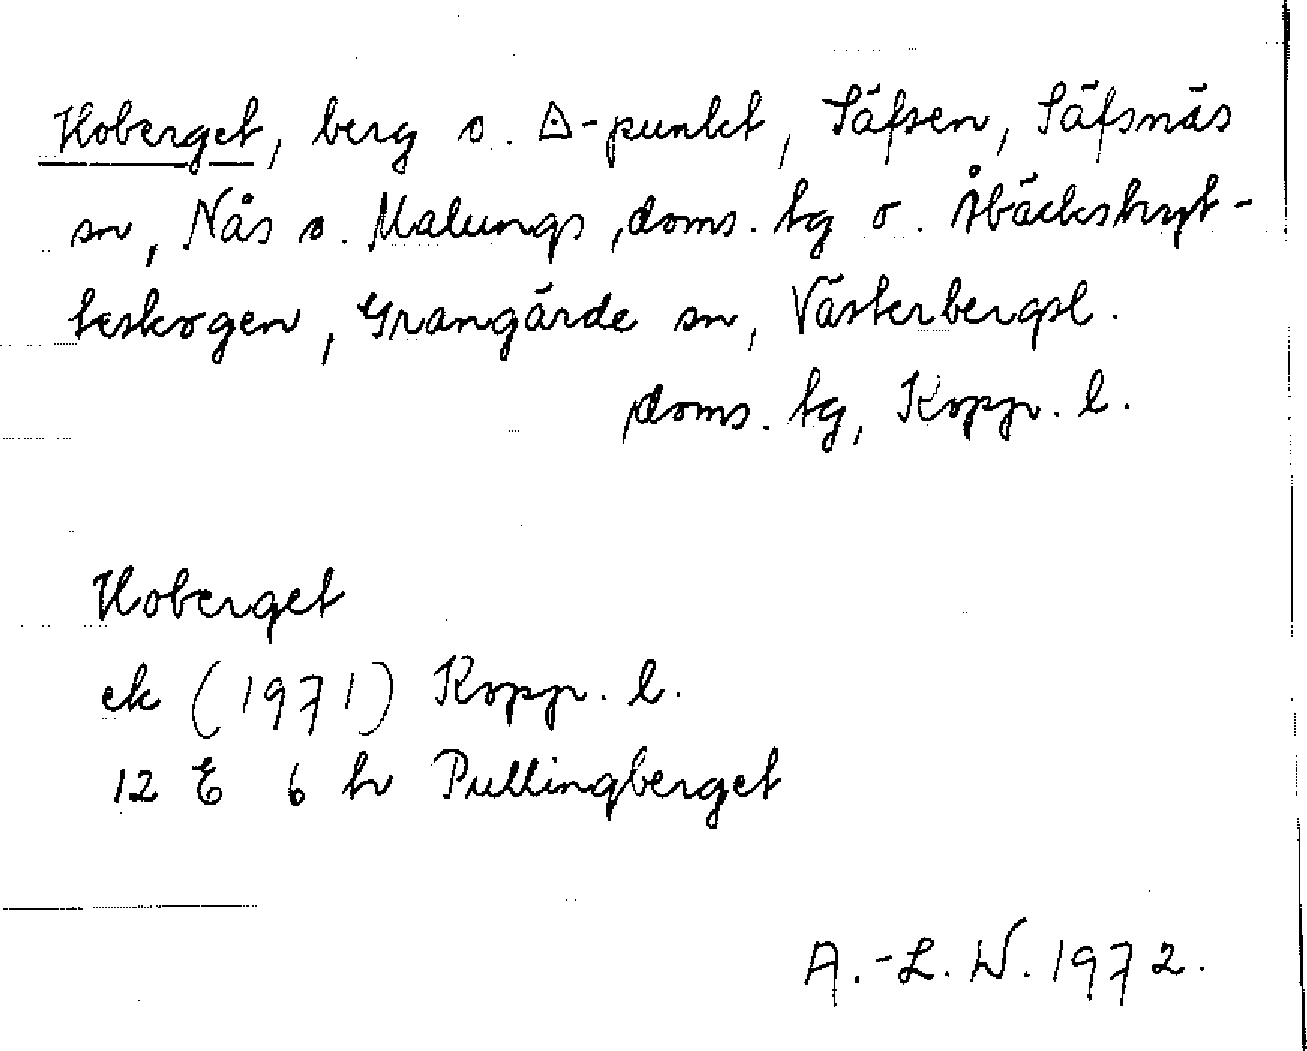 Hoberget, berg o. △-punkt, Säfsen, Säfsnäs
sn, Nås o. Malungs doms. tg o. Åbäckshyt-
teskogen, Grangärde sn, Västerbergsl.
doms. tg, Kopp. l.
Hoberget
ek (1971) Kopp. l.
12 E 6 h Pullingberget
A.-L. W. 1972.